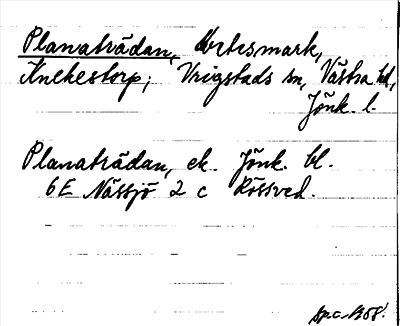 Planaträdan, utmark,
Knekestorp; Vrigstads sn, Västra hd,
Jönk. l.
Planaträdan, ek. Jönk. bl.
6E Nässjö 2 c Rössved.